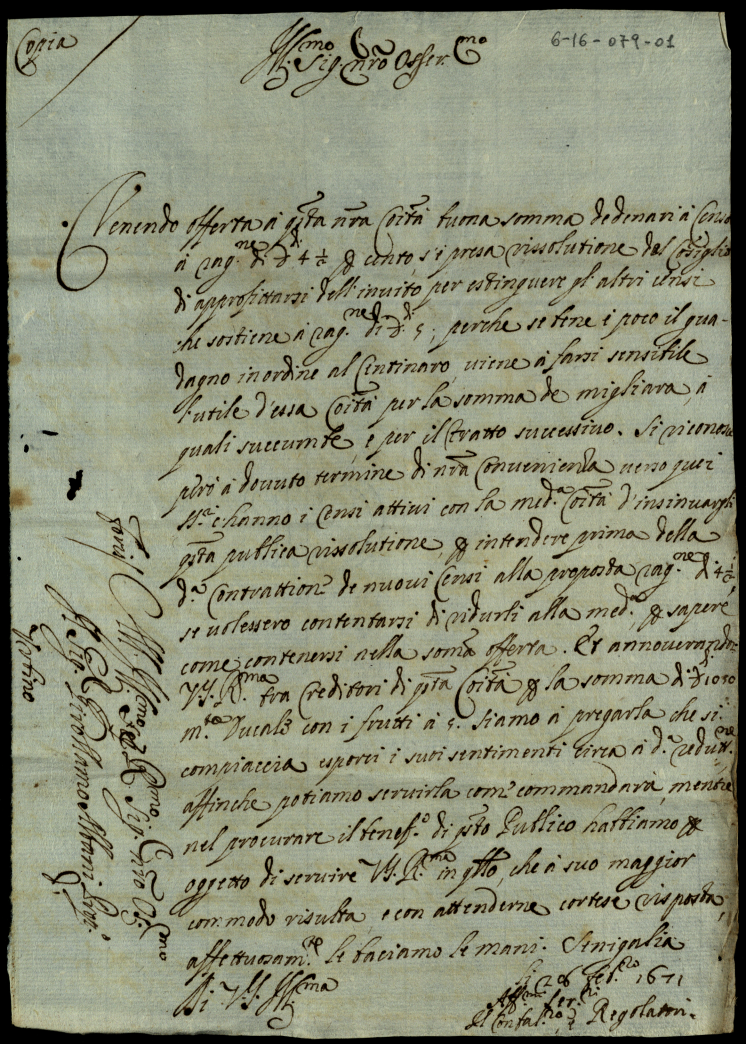 Copia
6-16-079-01
Ill.mo Sig. nrõ Osser.mo
Venendo offerta à qsta nrã Coità buona somma de denari à Censo
à rag.ne di 4 1/2 p cento, s'è presa rissolutione dal Consiglio
di approfittarsi dell'invito per estinguere gl'altri censi
che sostiene à rag.ne di 5, perche se bene è poco il gua-
dagno in ordine al Centinaro, viene à farsi sensibile
l'utile d'essa Coità per la somma de migliara, à
quali succumbe, e per il tratto successivo. Si riconosce
però à dovuto termine di nrã Convenienza verso quei
che hanno i Censi attivi con la med.a Coità d'insinuargli
qsta publica rissolutione, p intendere prima della
d.a Contrattione de nuovi Censi alla proposta rag.ne di 4 1/2,
se volessero contentarsi di ridurli alla med.a p sapere
come contenersi nella somã offerta. Et annoverandosi
V.S. R.ma tra Creditori di qsta Coità p la somma di 1050
m.ta Ducale con i frutti à 5. siamo à pregarla che si
compiaccia esporci i suoi sentimenti circa à d.a redutt.ne
affinche potiamo servirla come commandarà, mentre
nel procurare il benef.o di qsto Publico habbiamo p
oggetto di servire V.S. R.ma in qllo, che à suo maggior
commodo risulta, e con attenderne cortese risposta,
affettuosam.te le baciamo le mani. Senigalia
li 28 Feb.ro 1671
Di V.S. Ill.ma
Aff.mi Ser.ri
Il Confal.ro e Regolatori.
Foris
All' Ill.mo Sig.r Sig. nrõ Oss.mo
Il Sig. Girolamo Albani
Urbino